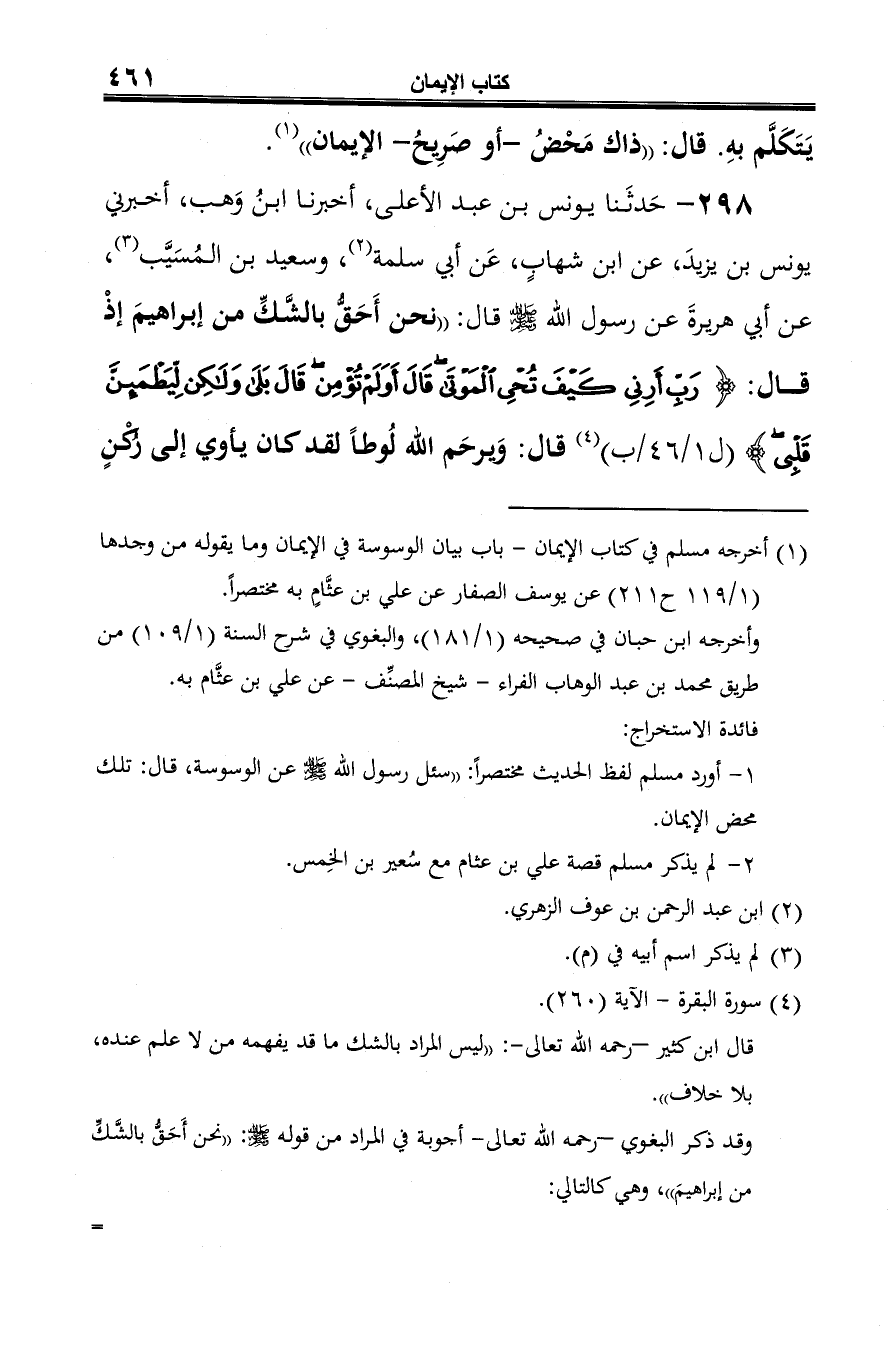 كتاب الإيمان ٤٦١
يَتَكَلَّم بهِ. قال: ((ذاك مَحْضُ –أو صَرِيحُ– الإيمان))(١).
٢٩٨– حَدثَنا يونس بن عبد الأعلى، أخبرنا ابنُ وَهب، أخبرني
يونس بن يزيدَ، عن ابن شهابٍ، عَن أبي سلمة(٢)، وسعيد بن المُسَيَّب(٣)،
عن أبي هريرةَ عن رسول الله ﷺ قال: ((نحن أَحَقُّ بالشَّكِّ من إبراهيمَ إذْ
قال: ﴿رَبِّ أَرِنِي كَيْفَ تُحْيِ الْمَوْتَىٰ ۖ قَالَ أَوَلَمْ تُؤْمِن ۖ قَالَ بَلَىٰ وَلَٰكِن لِّيَطْمَئِنَّ
قَلْبِي ۖ﴾ (ل٤٦/١/ب)(٤) قال: وَيرحَم الله لُوطاً لقد كان يأوي إلى رُكْنٍ
(١) أخرجه مسلم في كتاب الإيمان – باب بيان الوسوسة في الإيمان وما يقوله من وجدها
(١١٩/١ ح٢١١) عن يوسف الصفار عن علي بن عثَّامٍ به مختصراً.
وأخرجه ابن حبان في صحيحه (١٨١/١)، والبغوي في شرح السنة (١٠٩/١) من
طريق محمد بن عبد الوهاب الفراء – شيخ المصنِّف – عن علي بن عثَّام به.
فائدة الاستخراج:
١– أورد مسلم لفظ الحديث مختصراً: ((سئل رسول الله ﷺ عن الوسوسة، قال: تلك
محض الإيمان.
٢– لم يذكر مسلم قصة علي بن عثام مع سُعير بن الخِمس.
(٢) ابن عبد الرحمن بن عوف الزهري.
(٣) لم يذكر اسم أبيه في (م).
(٤) سورة البقرة – الآية (٢٦٠).
قال ابن كثير –رحمه الله تعالى–: ((ليس المراد بالشك ما قد يفهمه من لا علم عنده،
بلا خلاف)).
وقد ذكر البغوي –رحمه الله تعالى– أجوبة في المراد من قوله ﷺ: ((نحن أَحَقُّ بالشَّكِّ
من إبراهيمَ))، وهي كالتالي:
=